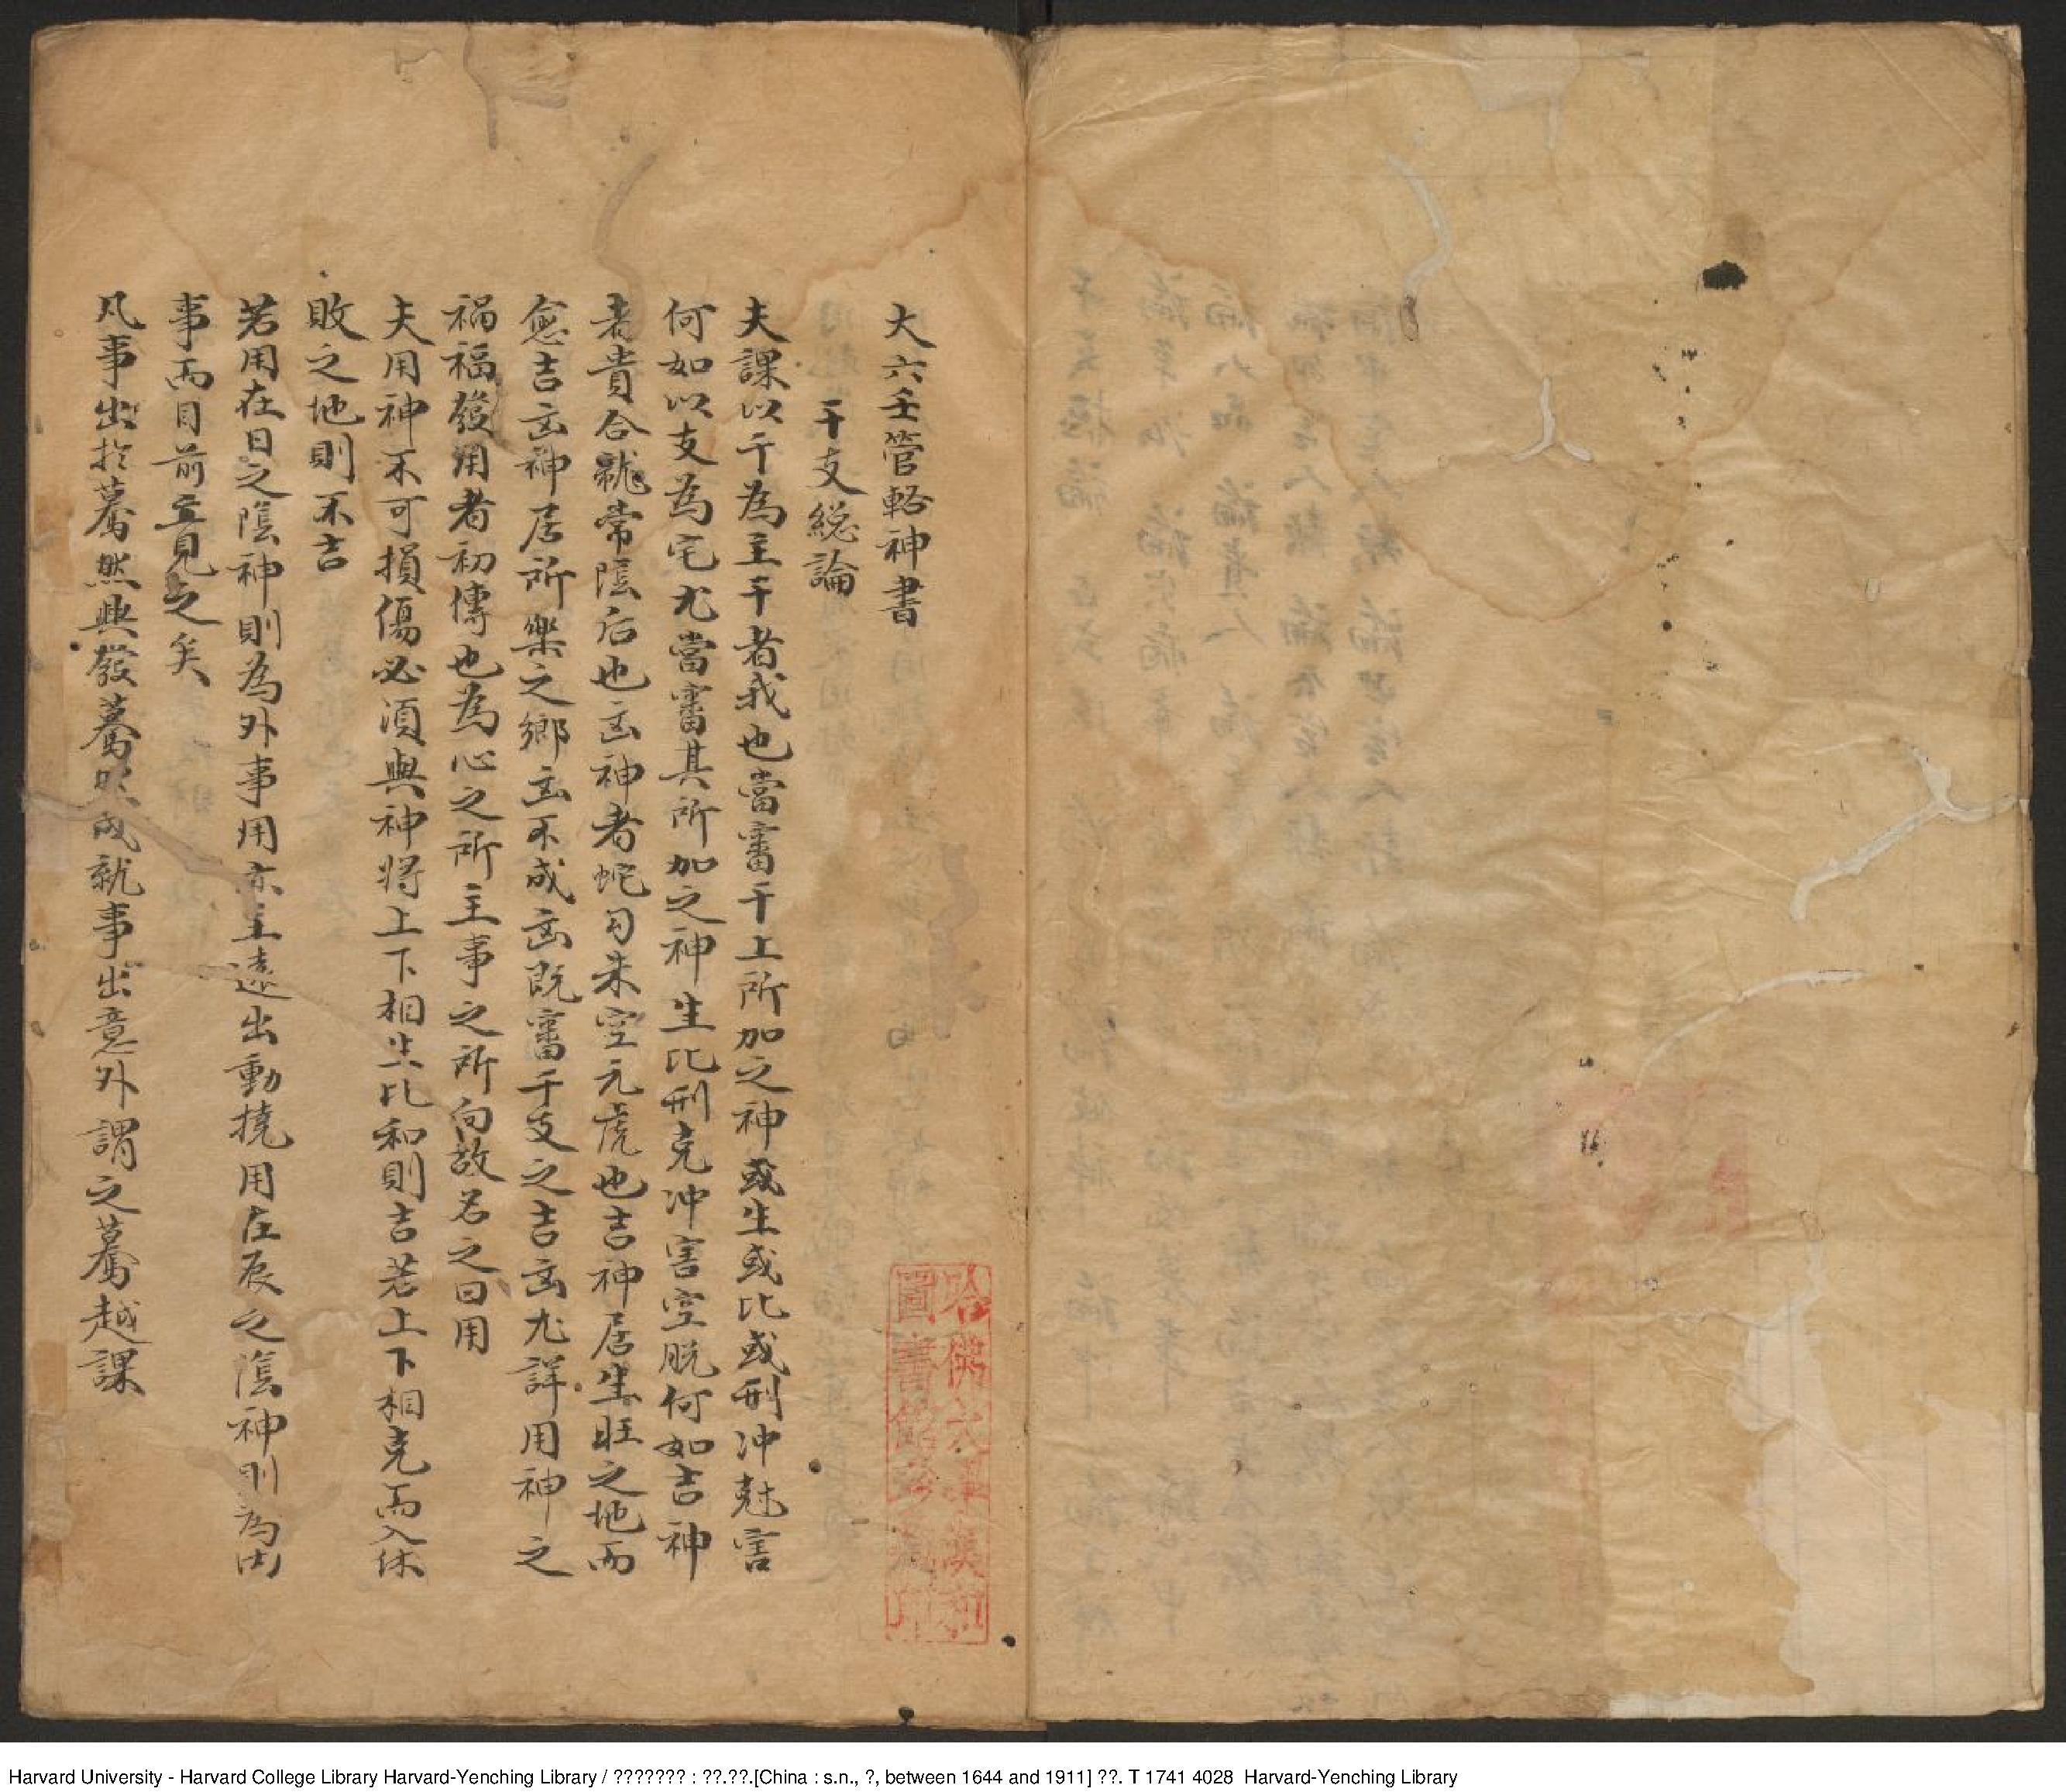 大六壬管輅神書
干支総論
夫課以干為主干者我也當審干上所加之神或生或比或刑冲尅害
何如以支為宅尤當審其所加之神生比刑克冲害空脱何如吉神
者貴合龍常陰后也凶神者蛇勾朱空元虎也吉神居生旺之地而
愈吉凶神居所樂之鄉主不成凶既審干支之吉凶尤詳用神之
禍福發用者初傳也為心之所主事之所向故名之曰用
夫用神不可損傷必須與神将上下相生比和則吉若上下相克而入休
敗之地則不吉
若用在日之陰神則為外事用亦主遠出動撓用在辰之陰神則為内
事而目前立見之矣
凡事出於驀然興發驀然成就事出意外謂之驀越課
哈佛大學漢和
圖書館珍藏印
Harvard University - Harvard College Library Harvard-Yenching Library / ??????? : ??.??.[China : s.n., ?, between 1644 and 1911] ??. T 1741 4028 Harvard-Yenching Library